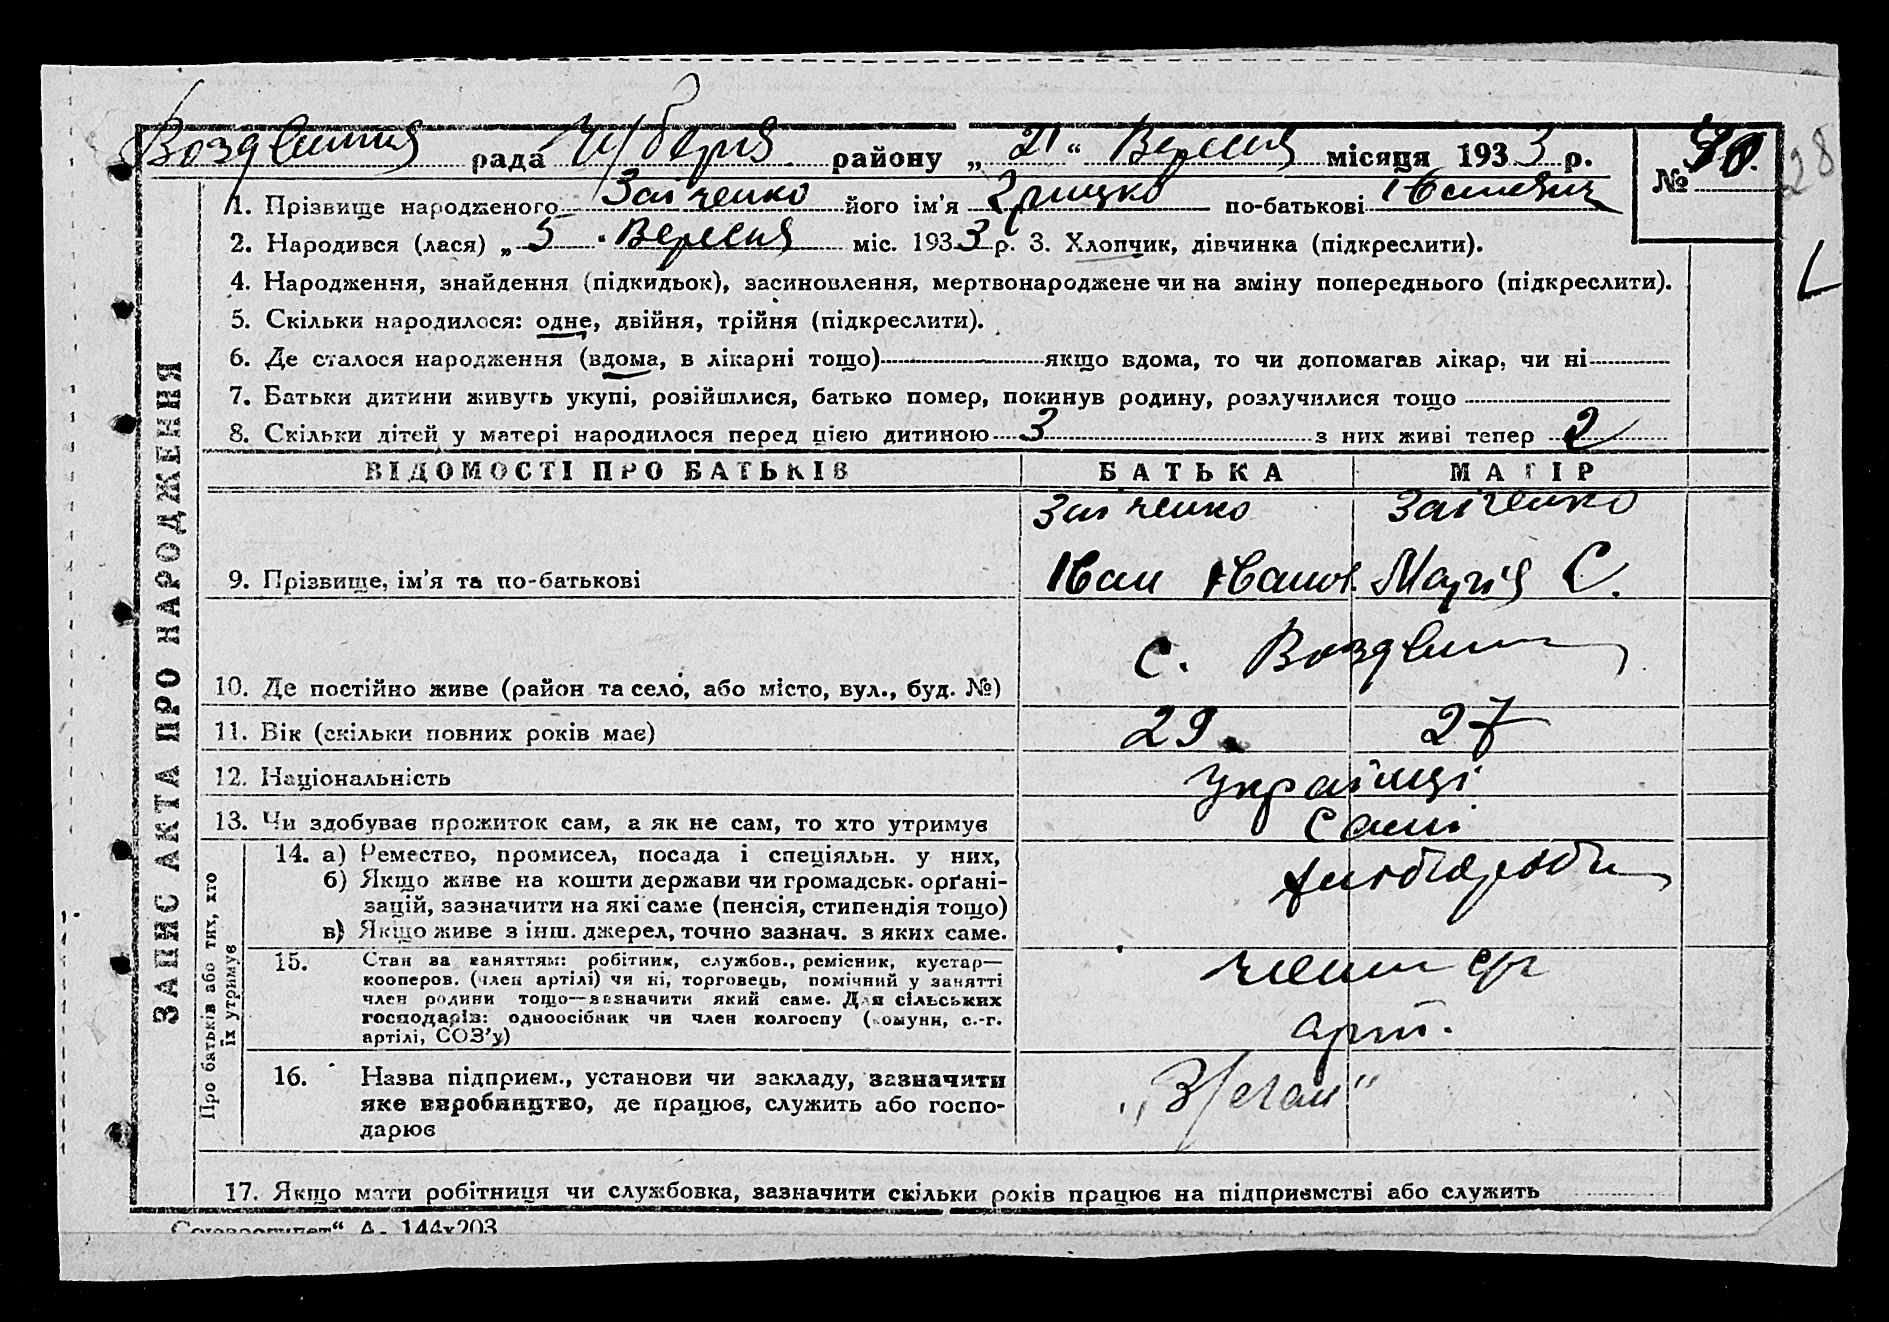 рада району „ 21 “ Вересня місяця 1933 р.
№ 90.
28
1. Прізвище народженого Заїченко його ім'я Грицько по-батькові Іванович
2. Народився (лася) „ 5 “ Вересня міс. 1933 р. 3. Хлопчик, дівчинка (підкреслити).
4. Народження, знайдення (підкидьок), засиновлення, мертвонароджене чи на зміну попереднього (підкреслити).
5. Скільки народилося: одне, двійня, трійня (підкреслити).
6. Де сталося народження (вдома, в лікарні тощо) якщо вдома, то чи допомагав лікар, чи ні
7. Батьки дитини живуть укупі, розійшлися, батько помер, покинув родину, розлучилися тощо
8. Скільки дітей у матері народилося перед цією дитиною 3 з них живі тепер 2
ЗАПИС АКТА ПРО НАРОДЖЕННЯ
ВІДОМОСТІ ПРО БАТЬКІВ БАТЬКА МАТІР
Заїченко Заїченко
9. Прізвище, ім'я та по-батькові Іван Іванов. Марія С.
10. Де постійно живе (район та село, або місто, вул., буд. №) с. Воздвиж
11. Вік (скільки повних років має) 29 27
12. Національність Українці
13. Чи здобуває прожиток сам, а як не сам, то хто утримує Самі
Про батьків або тих, хто
їх утримує
14. а) Ремество, промисел, посада і спеціяльн. у них,
б) Якщо живе на кошти держави чи громадськ. орґані-
зацій, зазначити на які саме (пенсія, стипендія тощо)
в) Якщо живе з інш. джерел, точно зазнач. з яких саме.
хлібороби
15. Стан за заняттям: робітник, службов., ремісник, кустар—
кооперов. (член артілі) чи ні, торговець, помічний у занятті
член родини тощо—зазначити який саме. Для сільських
господарів: одноосібник чи член колгоспу (комуни, с.-г.
артілі, СОЗ'у)
члени с/г
арт.
16. Назва підприєм., установи чи закладу, зазначити
яке виробництво, де працює, служить або госпо-
дарює
17. Якщо мати робітниця чи службовка, зазначити скільки років працює на підприємстві або служить
А- 144х203